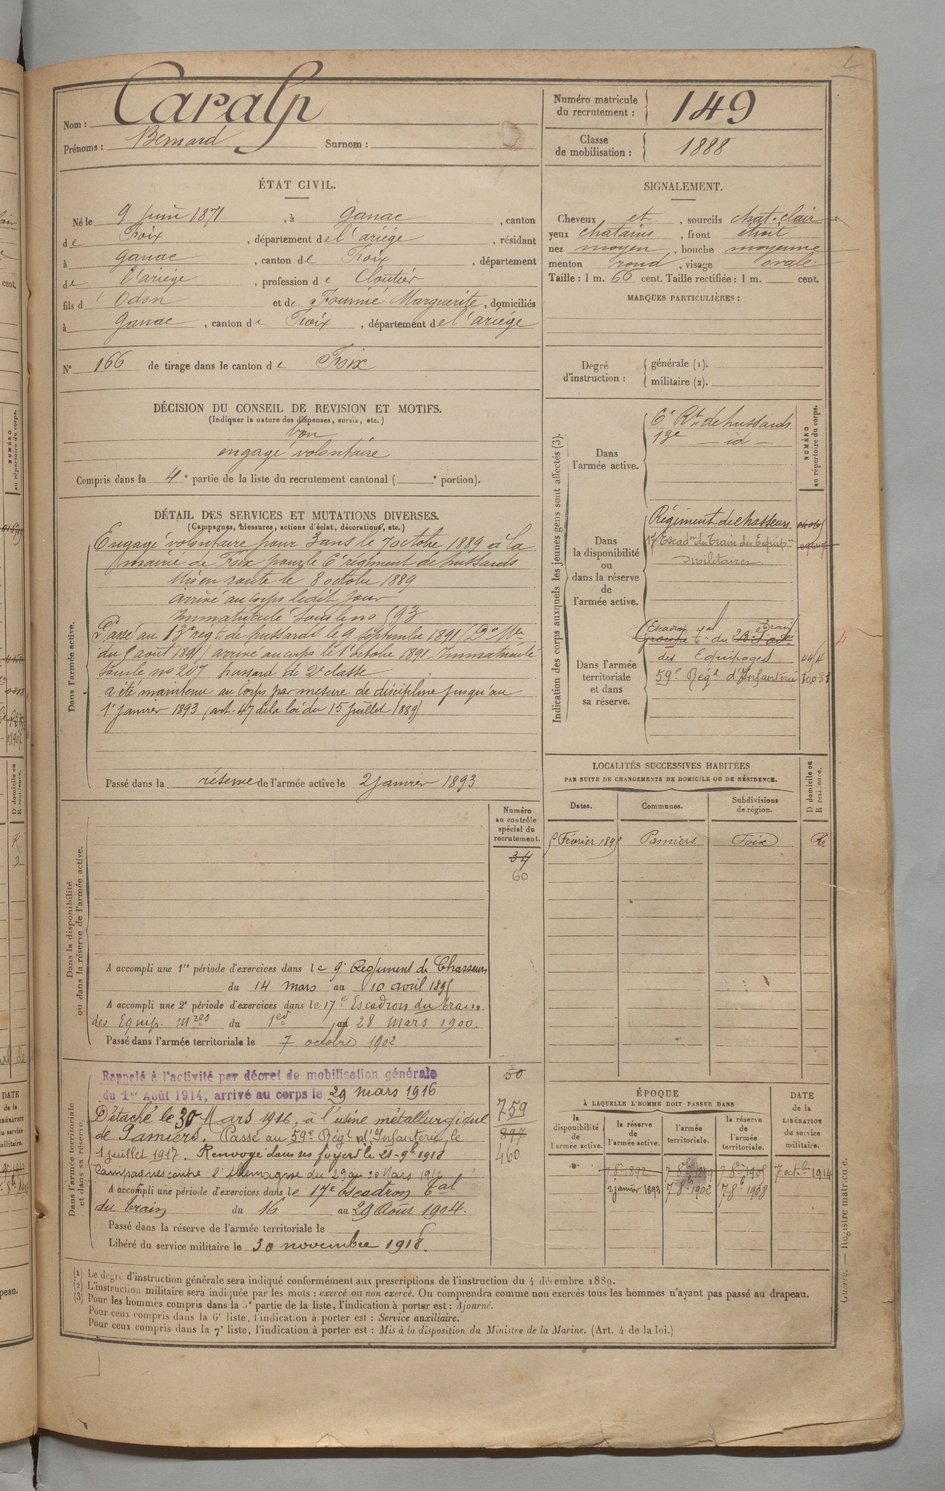 Nom : Caralp
Prénoms : Bernard Surnom :
Numéro matricule du recrutement : 149
Classe de mobilisation : 1888
ÉTAT CIVIL.
Né le 9 juin 1871, à Ganac, canton
de Foix, département de l'ariège, résidant
à Ganac, canton de Foix, département
de l'ariège, profession de Cloutier
fils d' Odon et de Fournié Marguerite, domiciliés
à Ganac, canton de Foix, département de l'ariège
N° 166 de tirage dans le canton de Foix
SIGNALEMENT.
Cheveux et, sourcils chat. clair
yeux chatains, front étroit
nez moyen, bouche moyenne
menton rond, visage ovale
Taille : 1 m. 66 cent. Taille rectifiée : 1 m. cent.
MARQUES PARTICULIÈRES :
Degré d'instruction : générale (1).
militaire (2).
DÉCISION DU CONSEIL DE REVISION ET MOTIFS.
(Indiquer la nature des dispenses, sursis, etc.)
bon
engagé volontaire
Compris dans la 4e partie de la liste du recrutement cantonal ( e portion).
DÉTAIL DES SERVICES ET MUTATIONS DIVERSES.
(Campagnes, blessures, actions d'éclat, décorations, etc.)
Dans l'armée active.
Engagé volontaire pour 3 ans le 7 octobre 1889 à la
mairie de Foix pour le 6e régiment de hussards
Mis en route le 8 octobre 1889
Arrivé au corps ledit jour
Immatriculé sous le no 193
Passé au 13e régt de hussards le 9 septembre 1891
du août 1891) arrivé au corps le 1er octobre 1891 Immatriculé
sous le no 207 hussard de 2e classe
a été maintenu au Corps par mesure de discipline jusqu'au
1er janvier 1893 (art. 47 de la loi du 15 juillet 1889)
Passé dans la réserve de l'armée active le 2 janvier 1893
Indication des corps auxquels les jeunes gens sont affectés (3).
NUMÉRO au répertoire du corps.
Dans l'armée active.
6e Rt de hussards
13e — id —
Dans la disponibilité ou dans la réserve de l'armée active.
Régiment de chasseurs
17 Escadn du Train des Equip
militaires
Dans l'armée territoriale et dans sa réserve.
Escadron Tal Train
des Equipages
59e Régt d'Infanterie
LOCALITÉS SUCCESSIVES HABITÉES
PAR SUITE DE CHANGEMENTS DE DOMICILE OU DE RÉSIDENCE.
Dates. Communes. Subdivisions de région. D domicile ou R résidence.
Février Pamiers Foix R
Dans la disponibilité ou dans la réserve de l'armée active.
Numéro au contrôle spécial du recrutement.
60
A accompli une 1re période d'exercices dans le 9e Régiment de Chasseurs
du 14 mars au 10 avril
A accompli une 2e période d'exercices dans le 17e Escadron du train
des Equip. Mres du 1er au 28 Mars 1900.
Passé dans l'armée territoriale le 7 octobre 1902
Dans l'armée territoriale et dans sa réserve.
50
759
897
460
Rappelé à l'activité par décret de mobilisation générale
du 1er Août 1914, arrivé au corps le 29 mars 1916
Détaché le 30 Mars 1916 à l'usine métallurgique
de Pamiers. Passé au 59e Régt d'Infanterie le
1 juillet 1917. Renvoyé dans ses foyers le
Campagnes contre l'Allemagne du 29 au 30 Mars 1916
A accompli une période d'exercices dans le 17e escadron Tal
du train du 16 au 29 Août 1904.
Passé dans la réserve de l'armée territoriale le
Libéré du service militaire le 30 novembre 1918.
ÉPOQUE
À LAQUELLE L'HOMME DOIT PASSER DANS
la disponibilité de l'armée active. la réserve de l'armée active. l'armée territoriale. la réserve de l'armée territoriale.
DATE de la LIBÉRATION du service militaire.
7 octbre 1914
2 janvier 1893 7 8bre 1902 7 8bre 1908
(1) Le degré d'instruction générale sera indiqué conformément aux prescriptions de l'instruction du 4 décembre 1889.
(2) L'instruction militaire sera indiquée par les mots : exercé ou non exercé. On comprendra comme non exercés tous les hommes n'ayant pas passé au drapeau.
(3) Pour les hommes compris dans la 5e partie de la liste, l'indication à porter est : Ajourné.
Pour ceux compris dans la 6e liste, l'indication à porter est : Service auxiliaire.
Pour ceux compris dans la 7e liste, l'indication à porter est : Mis à la disposition du Ministre de la Marine. (Art. 4 de la loi.)
Guerre. — Registre matricule.